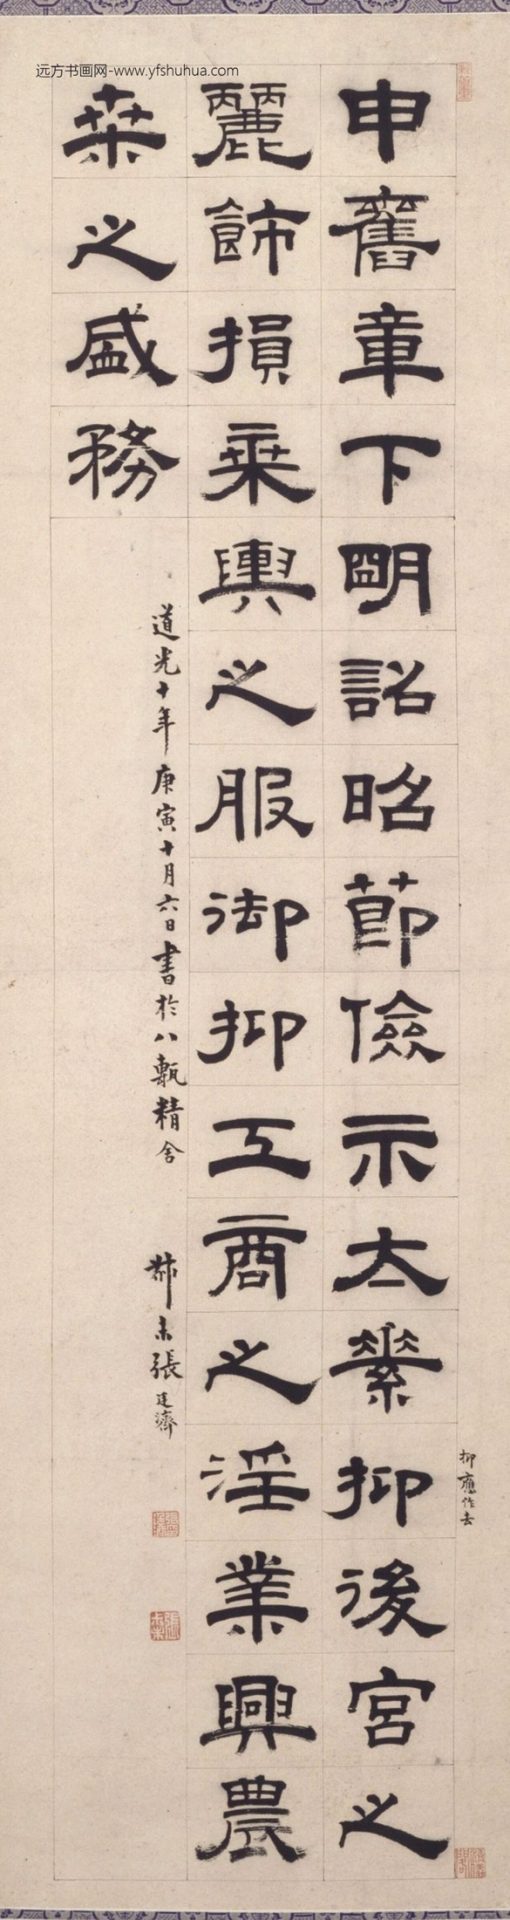 远方书画网-www.yfshuhua.com
申舊章下明詔昭節儉示太素抑後宮之
麗飾損乗輿之服御抑工商之淫業興農
桒之盛務
抑應作去
道光十年庚寅十月六日書於八甎精舍
叔未張廷濟